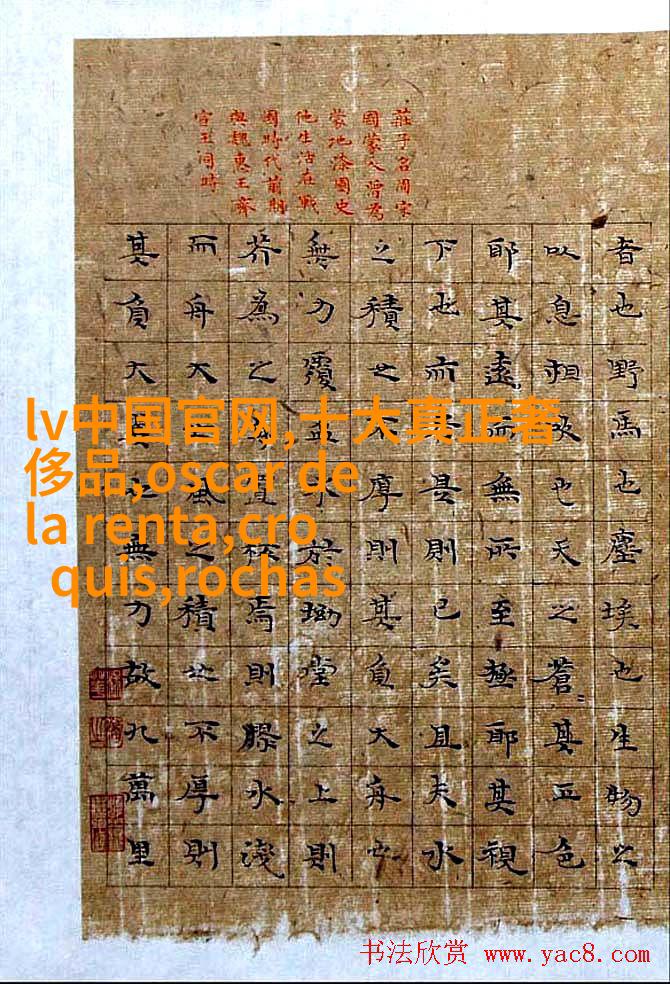 莊子名周宋
國蒙人曾為
蒙地漆園史
他生活在戰
國時代前期
與魏惠王齊
宣王同時
者也野馬也塵埃也生物之
以息相吹也天之蒼〻其正色
耶其遠而無所至極耶其視
下也而亦是則已矣且夫水
之積也不厚則其負大舟也
無力覆盃水於坳堂之上則
芥為之舟置杯焉則膠水淺
而舟大也風之積也不厚則
其負大翼也無力故九萬里
lv中国官网,十大真正奢
侈品,oscar de
la renta,cro
quis,rochas
书法欣赏 www.yac8.com